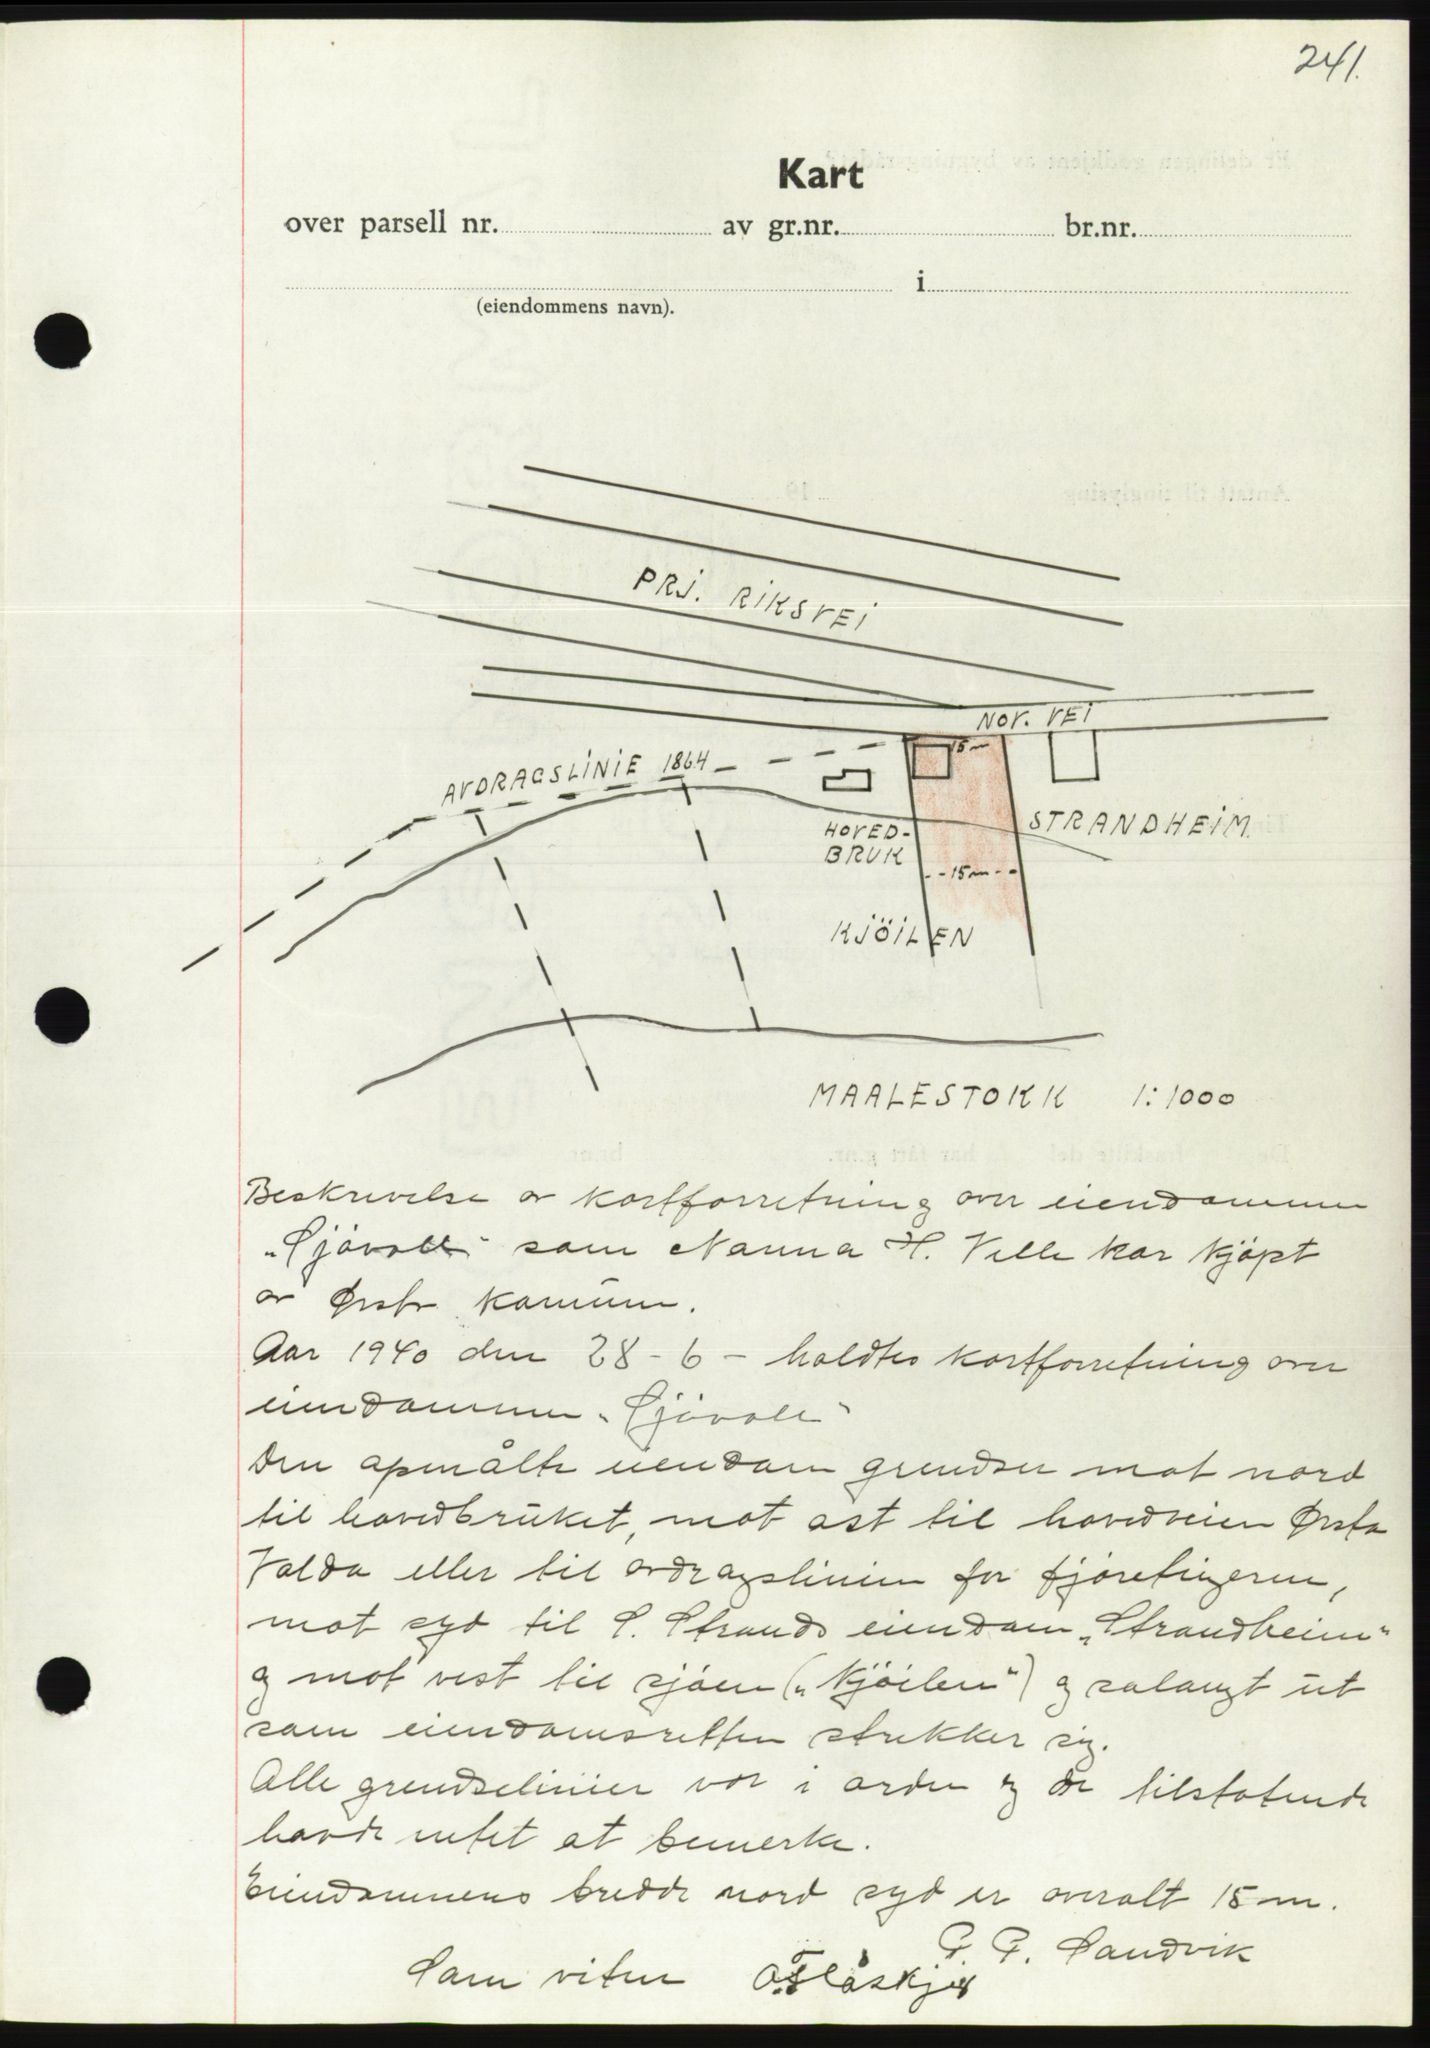 241.
Kart
over parsell nr. av gr.nr. br.nr.
i
(eiendommens navn).
PRJ. RIKSVEI
NOV. VEI
15 m
AVDRAGSLINIE 1864
HOVED-
BRUK
STRANDHEIM.
15 m
KJÖILEN
MAALESTOKK 1:1000
Beskrivelse av kartforretning over eiendommen
"Sjövoll" som Nanna H. Velle har kjöpt
av Ørsta komūne.
Aar 1940 den 28-6- holdtes kartforretning over
eiendommen "Sjövoll"
Den opmålte eiendom grendser mot nord
til hovedbrūket, mot ost til hovedveien Ørsta
Volda eller til avdragslinien for fjöretingerne,
mot syd til S. Strands eiendom "Strandheim"
og mot vest til sjöen ("Kjöilen") og salangt ūt
som eiendomsretten strekker sig.
Alle grendselinier var i orden og de tilstotende
havde intet at bemerke.
Eiendommens bredde nord syd er overalt 15 m.
P. P. Sandvik
Som vitne O. Flåskjer